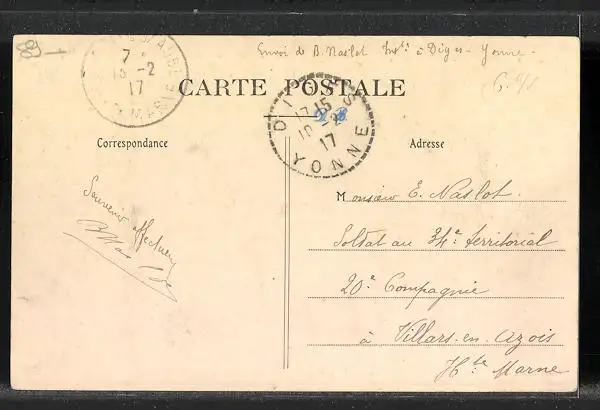 Envoi de B. Naslot Inst. à Diges - Yonne -
7
15 -2
17
MARNE
CARTE POSTALE
DIGES
17 15
10 -2
17
YONNE
Correspondance
Adresse
Souvenir affectueux
Monsieur E. Naslot
Soldat au 34e territorial
20e Compagnie
à Villars-en-Azois
Hte Marne